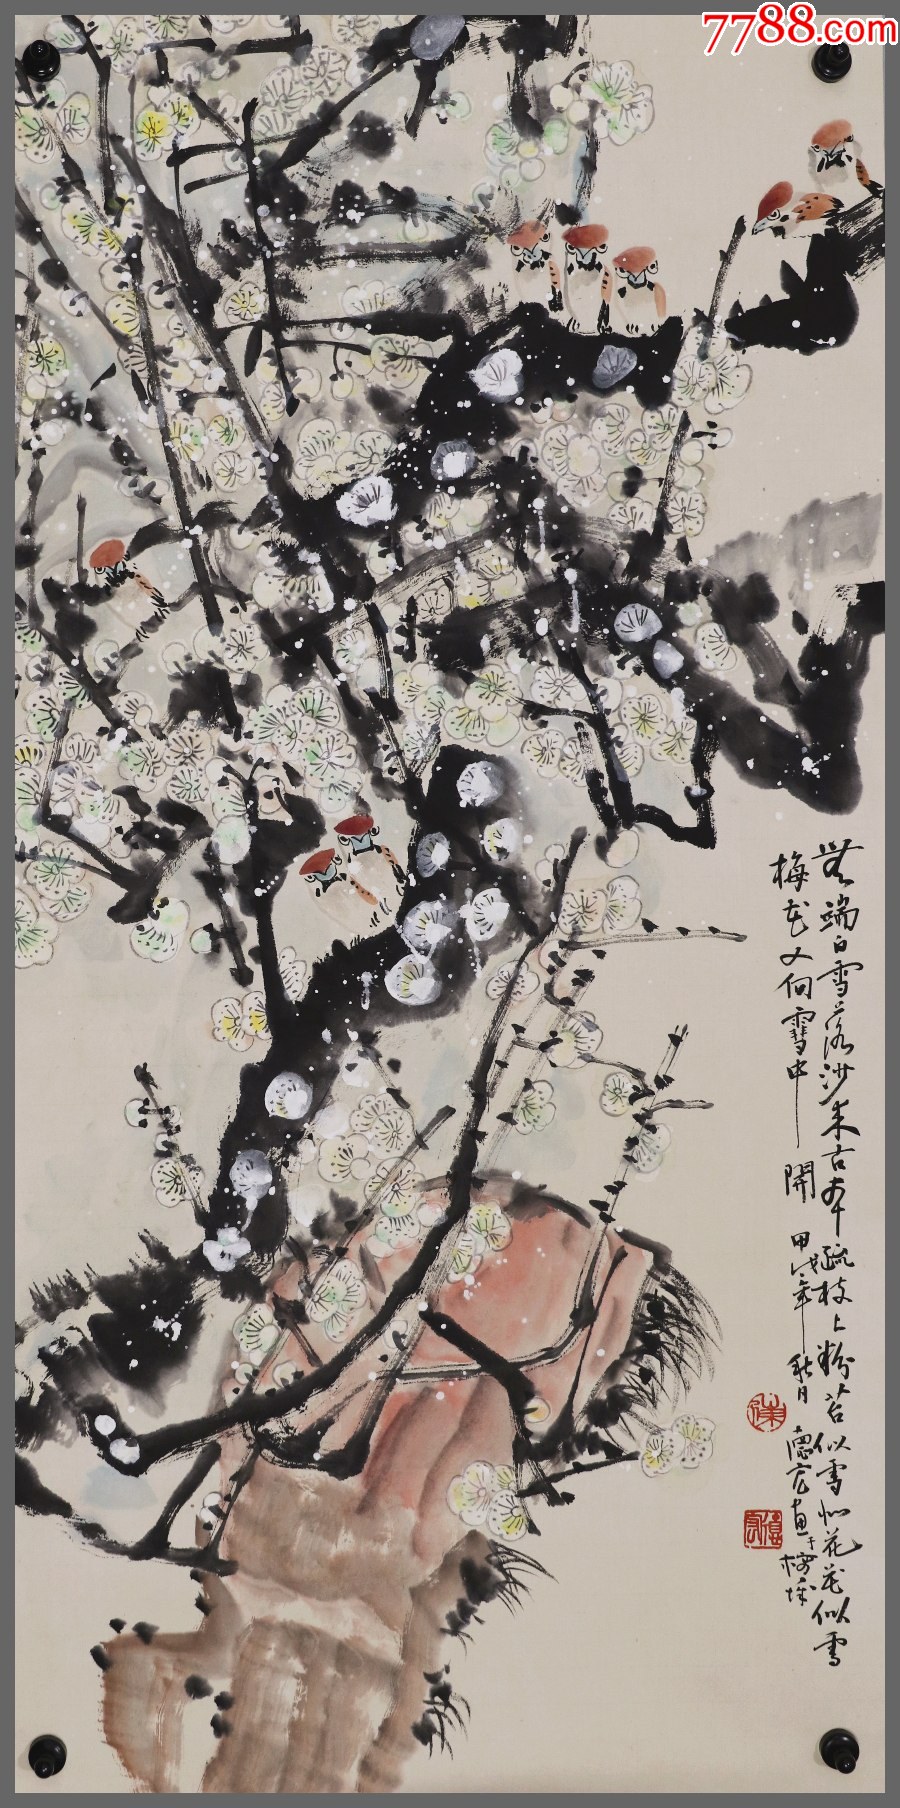 7788.com
無端白雪落沙来古本疏枝上粉苔似雪如花花似雪
梅花又向雪中開 甲戌年秋日 德宏画于榕城